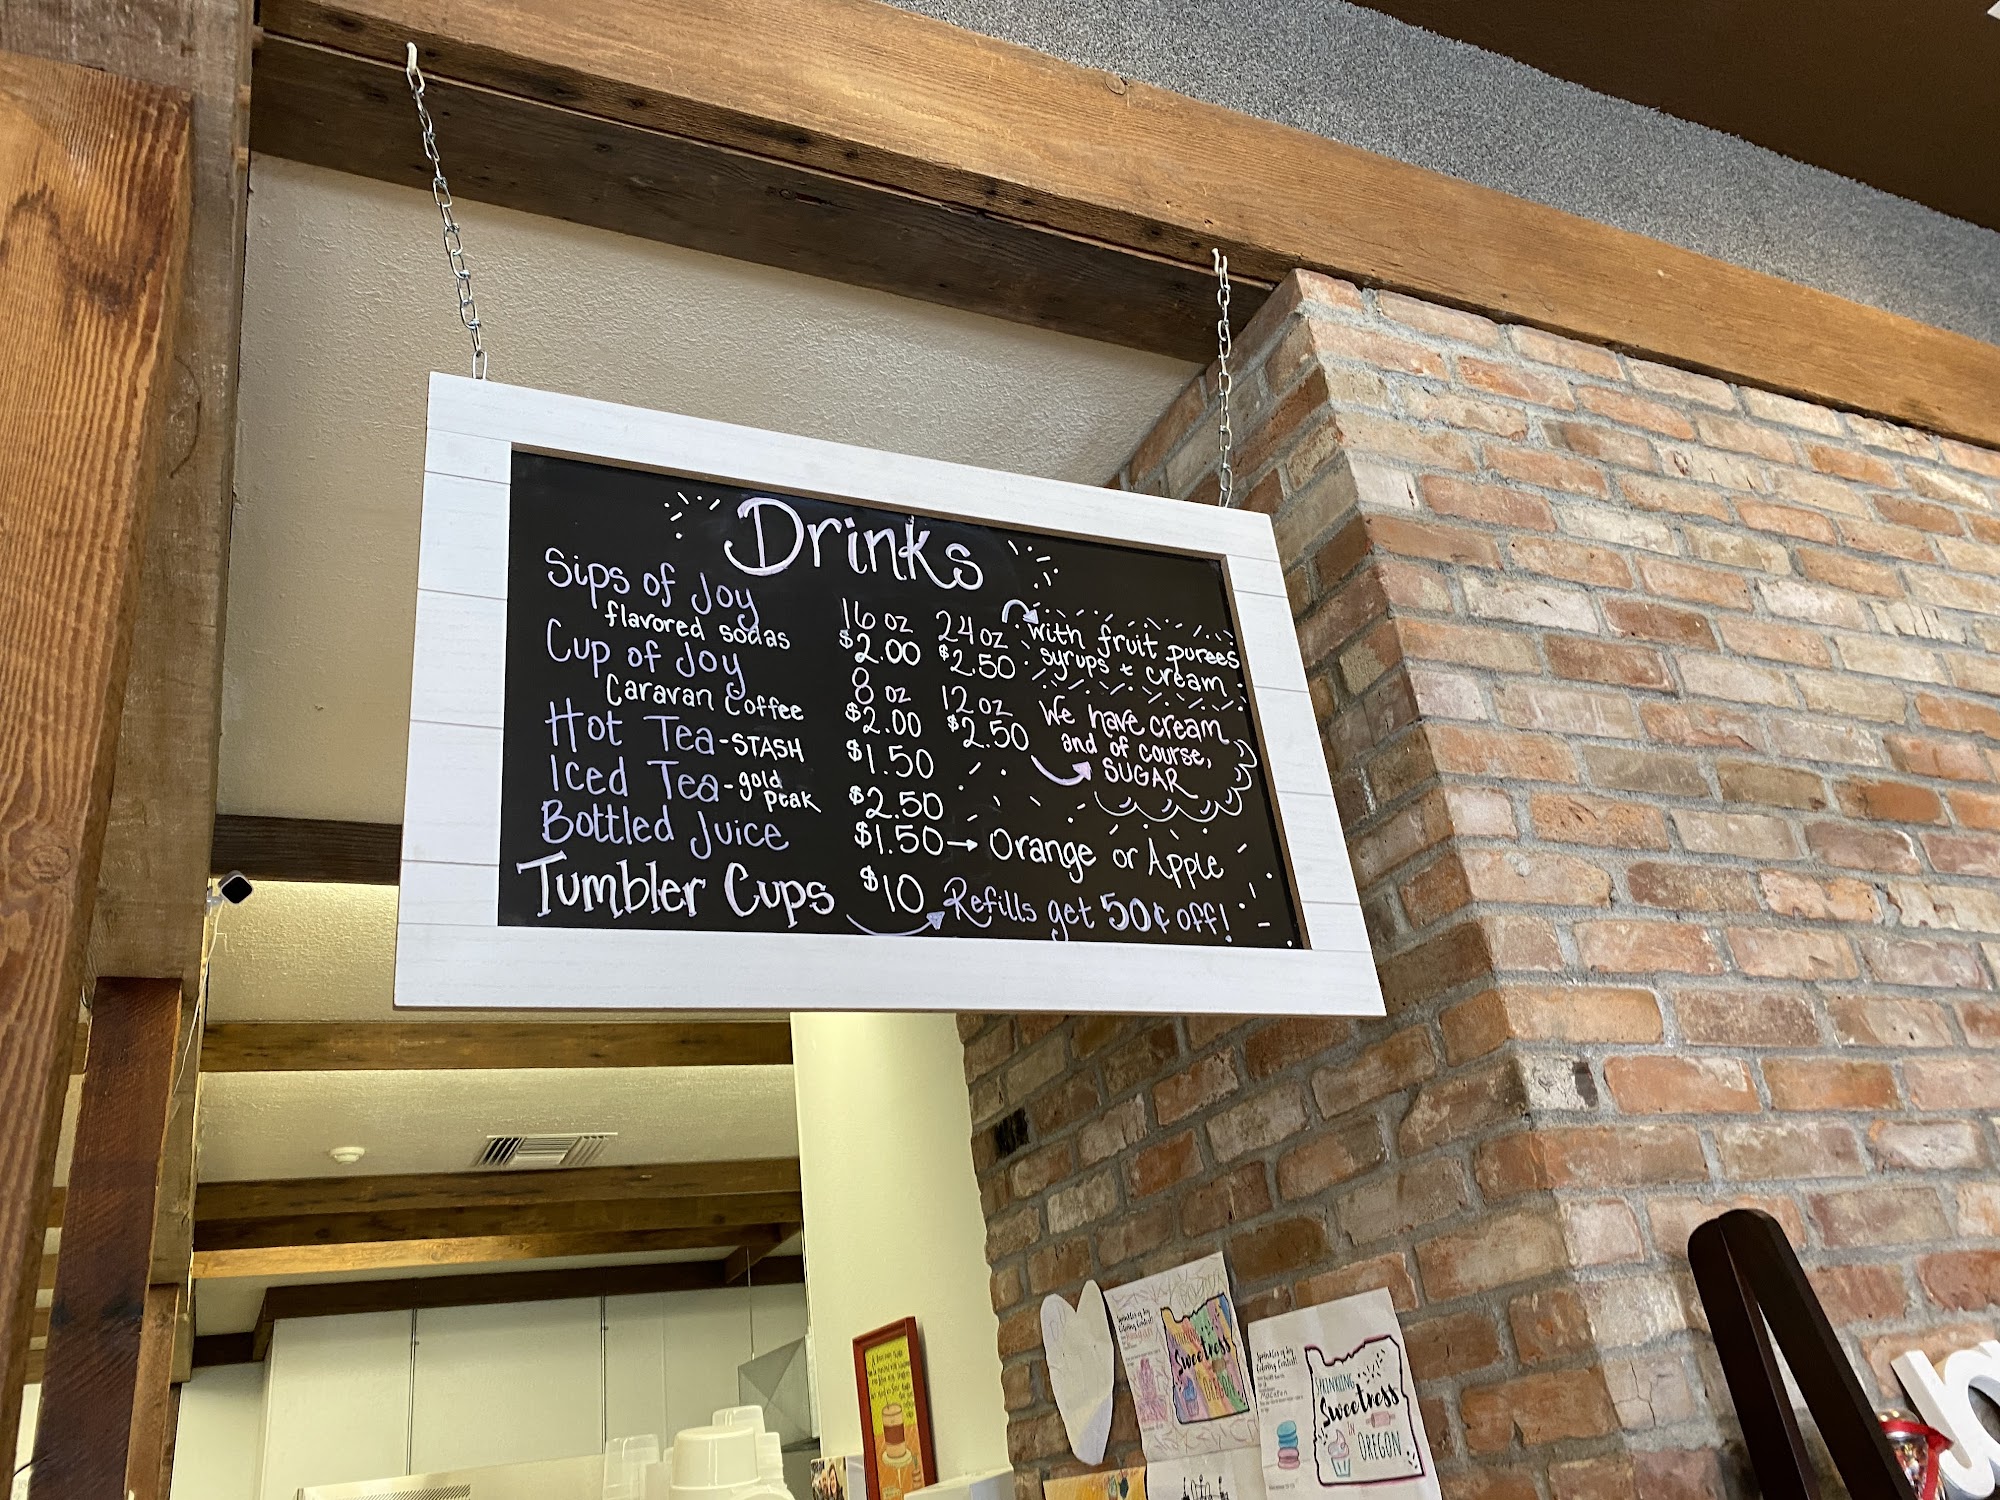 Drinks
Sips of Joy
flavored sodas
16 oz 24 oz
$2.00 $2.50
with fruit purees
syrups & cream
Cup of Joy
Caravan Coffee
8 oz 12 oz
$2.00 $2.50
We have cream
and of course,
SUGAR
Hot Tea - STASH $1.50
Iced Tea - gold peak $2.50
Bottled Juice $1.50 → Orange or Apple
Tumbler Cups $10 Refills get 50¢ off!
Sweetness
SPRINKLING
Sweetness
IN
OREGON